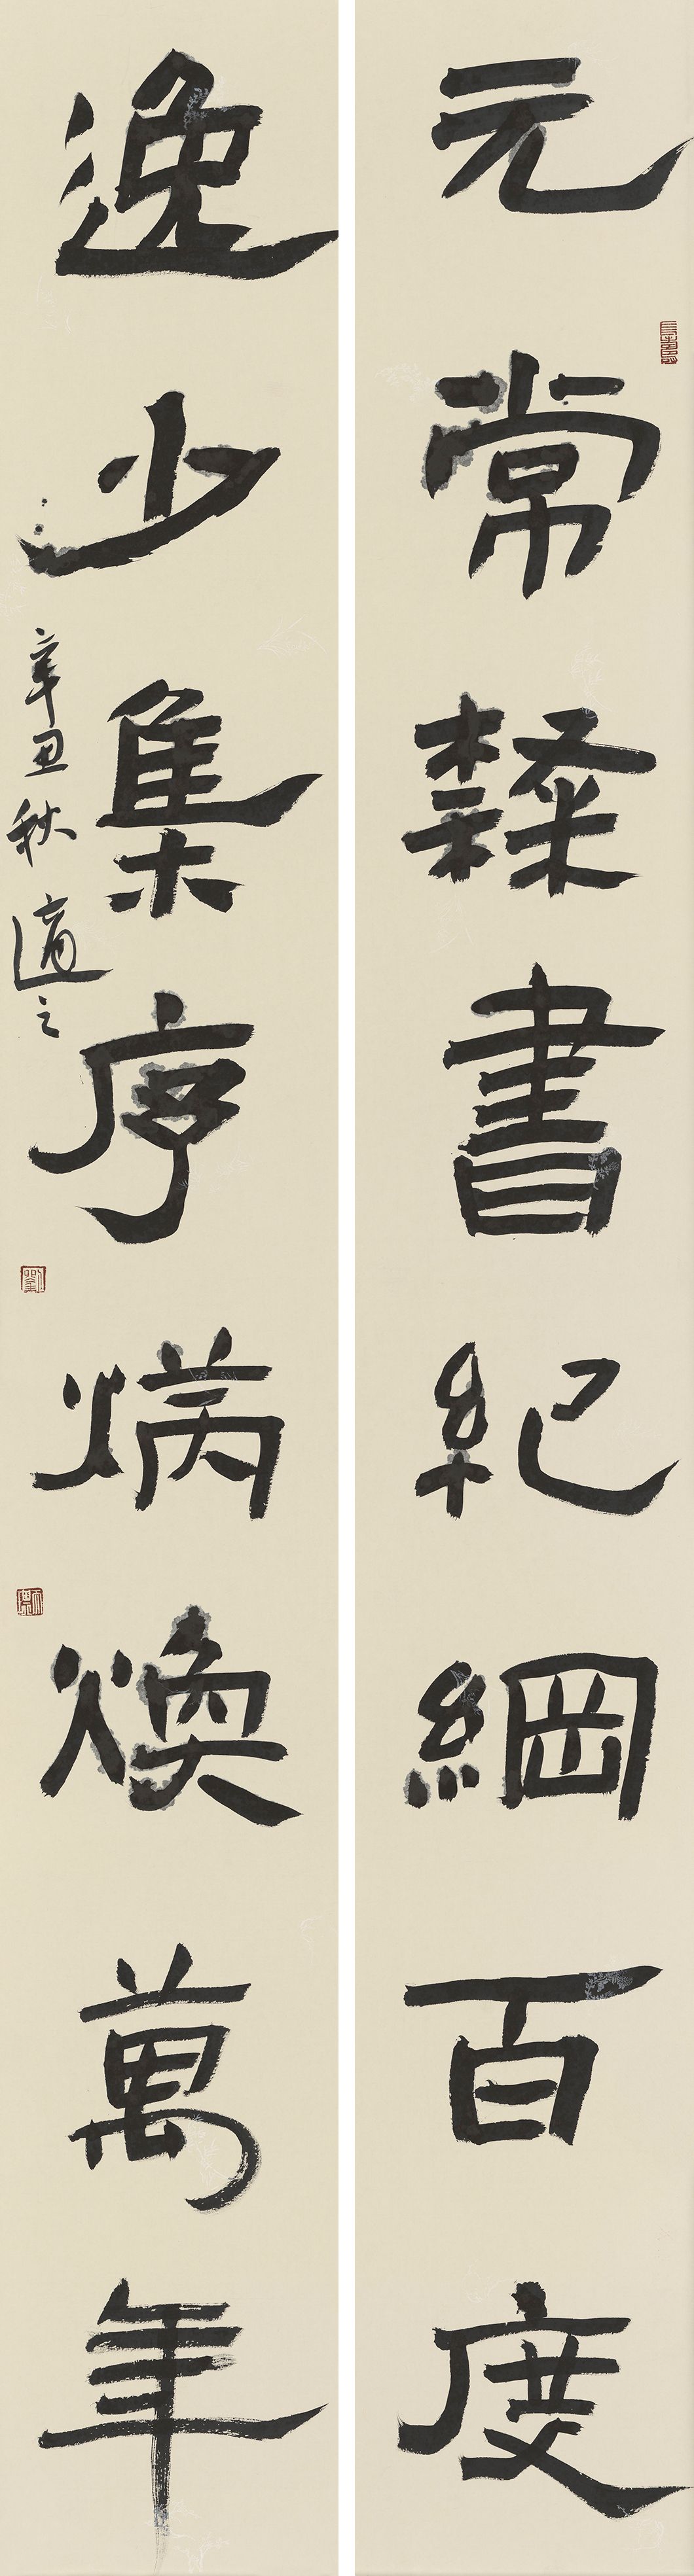 元常隸書紀綱百度
逸少集序炳煥萬年
辛丑秋適之